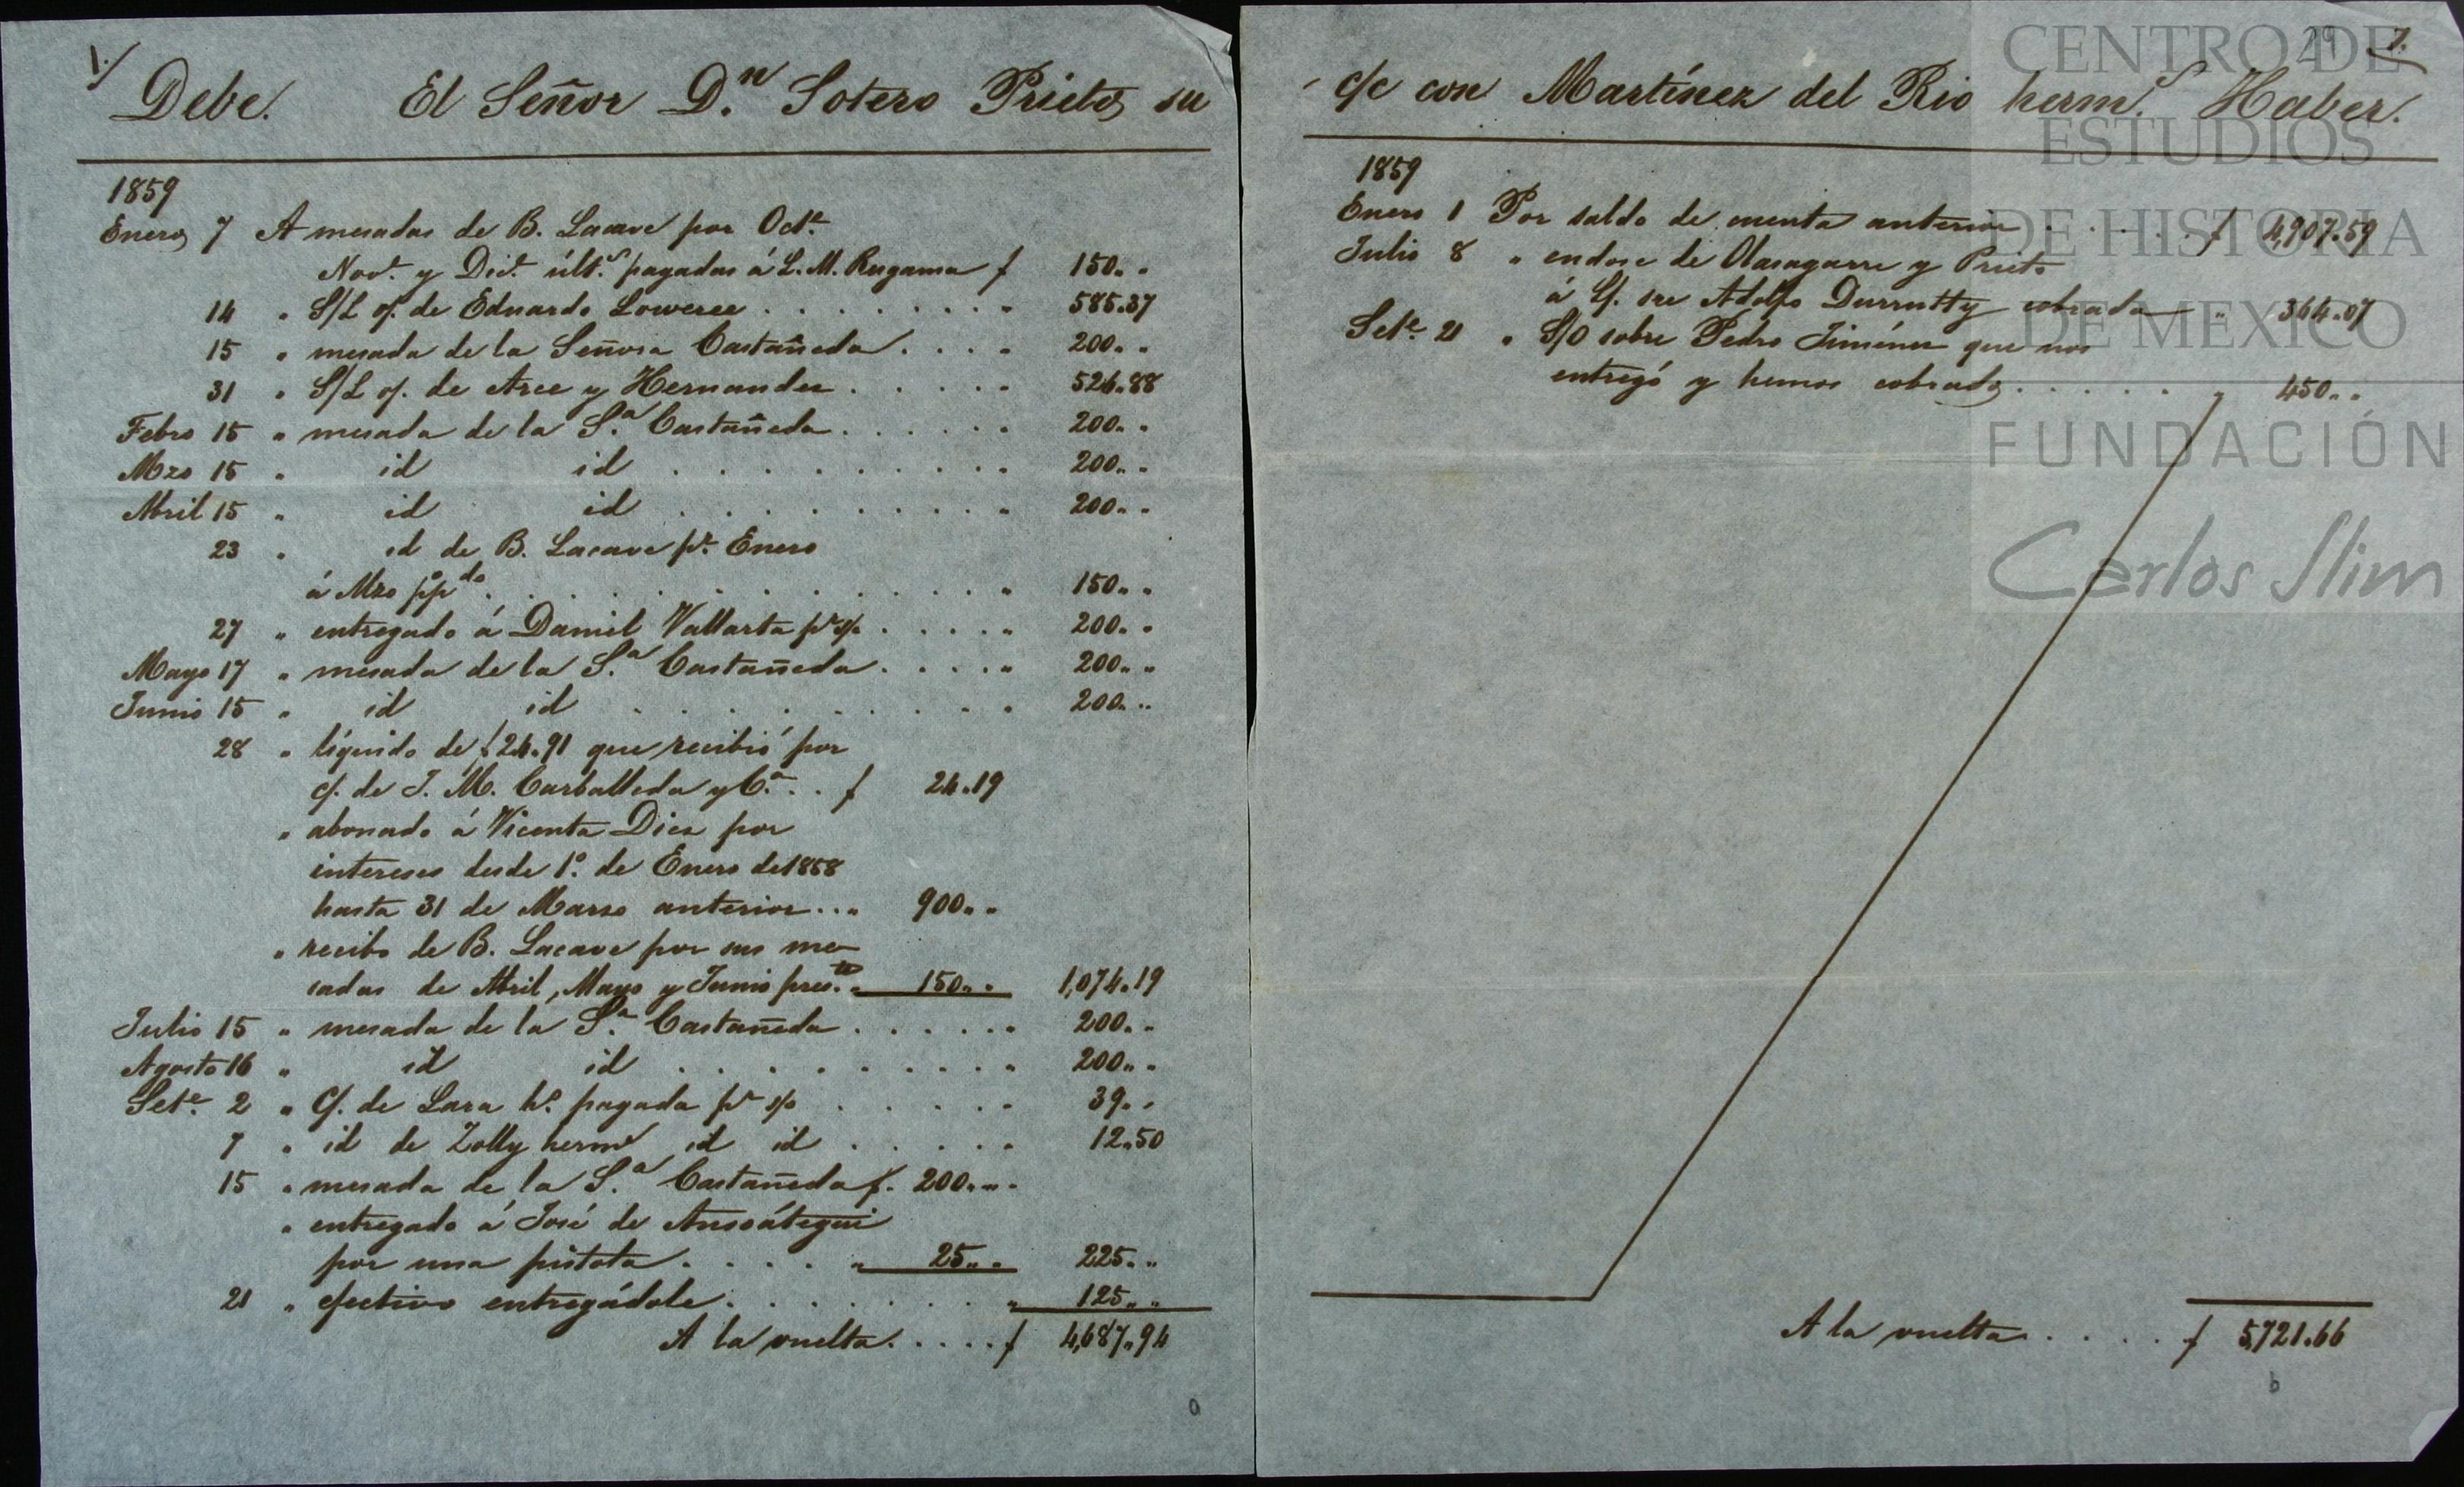 1./
Debe. El Señor D.n Sotero Prieto su
1859
Enero 7 A mesadas de B. Lacave por Oct.e
Nov.e y Dic.e últ.s pagadas á L. M. Rugama $ 150.. "
14 " S/L o/. de Eduardo Loweree . . . . . . . . " 585.37
15 " mesada de la Señora Castañeda . . . . " 200.. "
31 " S/L o/. de Arce y Hernandez . . . . . 526.88
Febro 15 " mesada de la S.a Castañeda . . . . . . " 200.. "
Mzo 15 " id id . . . . . . . . . " 200.. "
Abril 15 " id id . . . . . . . . . " 200.. "
23 " id de B. Lacave p.r Enero
á Mzo p.o p.do . . . . . . . . . . . . " 150.. "
27 " entregado á Daniel Vallarta p.r s/o . . . . " 200.. "
Mayo 17 " mesada de la S.a Castañeda . . . . " 200.. "
Junio 15 " id id . . . . . . . . . " 200.. "
28 " líquido de $24.91 que recibió por
c/. de J. M. Carballeda y C.a . . $ 24.19
" abonado á Vicenta Diez por
intereses desde 1.o de Enero de 1858
hasta 31 de Marzo anterior . . " 900.. "
" recibo de B. Lacave por sus me-
sadas de Abril, Mayo y Junio pres.te " 150.. " 1,074.19
Julio 15 " mesada de la S.a Castañeda . . . . . . " 200.. "
Agosto 16 " id id . . . . . . . . . " 200.. "
Set.e 2 " C/. de Lara h.o pagada p.r s/o . . . . . " 39.. "
7 " id de Zolly herm.s id id . . . . . " 12.50
15 " mesada de la S.a Castañeda $. 200.. "
" entregado á José de Ansoátegui
por una pistola . . . . . " 25.. " 225.. "
21 " efectivo entregádole . . . . . . . . " 125.. "
A la vuelta . . . . . $ 4,687.94
a
29 1.
c/c con Martínez del Rio herm.s Haber.
1859
Enero 1 Por saldo de cuenta anterior . . . . . . . $ 4,907.59
Julio 8 " endose de Olasagarre y Prieto
á L/. sre Adolfo Durrutty cobrada " 364.07
Set.e 21 " S/O sobre Pedro Jiménez que nos
entregó y hemos cobrado . . . . . " 450.. "
A la vuelta . . . . . $ 5,721.66
b
CENTRO DE
ESTUDIOS
DE HISTORIA
DE MEXICO
FUNDACIÓN
Carlos Slim